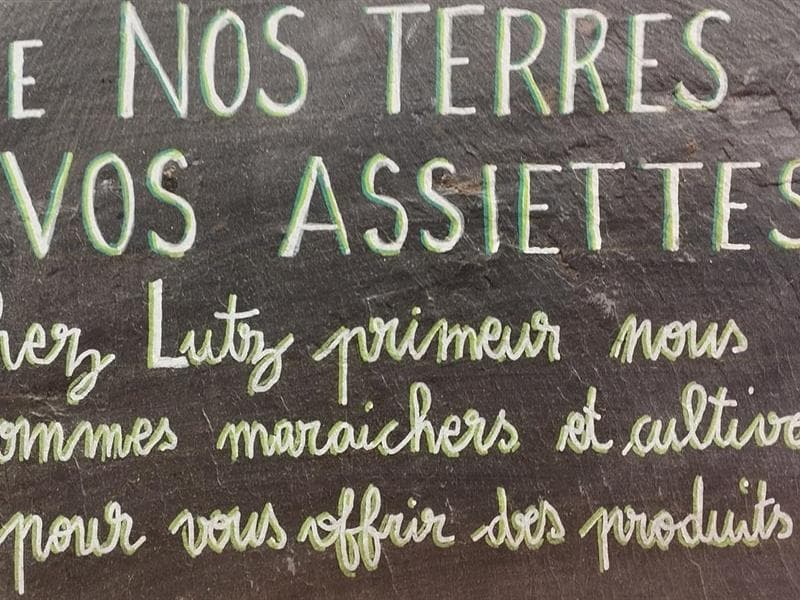 E NOS TERRES
VOS ASSIETTES
hez Lutz primeur nous
ommes maraichers et cultive
pour vous offrir des produits